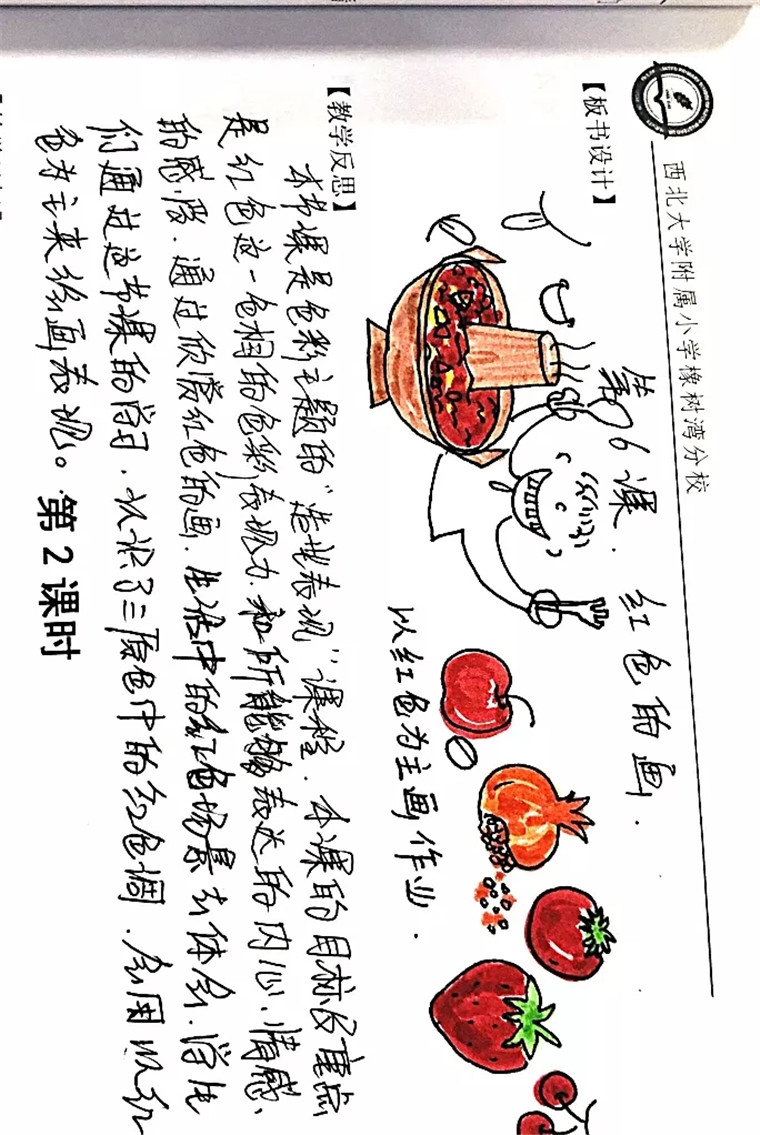 西北大学附属小学橡树湾分校
【板书设计】
第6课. 红色的画.
以红色为主画作业.
【教学反思】
本节课是色彩主题的“造型表现”课程.本课的目标及重点
是红色这一色相的色彩表现力.和所能够表达的内心、情感、
的感受.通过欣赏红色的画.生活中的红色场景去体会.学生
们通过这节课的学习.认识了三原色中的红色调.会用以红
色为主来绘画表现。
第2课时